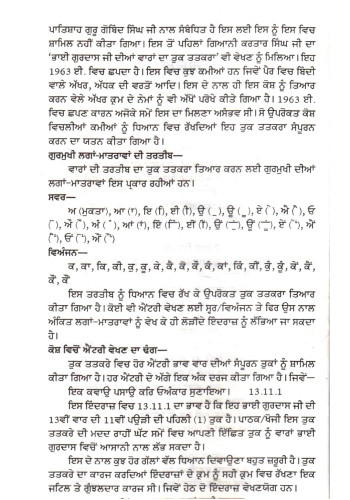 ਪਾਤਿਸ਼ਾਹ ਗੁਰੂ ਗੋਬਿੰਦ ਸਿੰਘ ਜੀ ਨਾਲ ਸੰਬੰਧਿਤ ਹੈ ਇਸ ਲਈ ਇਸ ਨੂੰ ਇਸ ਵਿਚ
ਸ਼ਾਮਿਲ ਨਹੀਂ ਕੀਤਾ ਗਿਆ। ਇਸ ਤੋਂ ਪਹਿਲਾਂ ਗਿਆਨੀ ਕਰਤਾਰ ਸਿੰਘ ਜੀ ਦਾ
'ਭਾਈ ਗੁਰਦਾਸ ਜੀ ਦੀਆਂ ਵਾਰਾਂ ਦਾ ਤੁਕ ਤਤਕਰਾ' ਵੀ ਵੇਖਣ ਨੂੰ ਮਿਲਿਆ। ਇਹ
1963 ਈ. ਵਿਚ ਛਪਦਾ ਹੈ। ਇਸ ਵਿਚ ਕੁਝ ਕਮੀਆਂ ਹਨ ਜਿਵੇਂ ਪੈਰ ਵਿਚ ਬਿੰਦੀ
ਵਾਲੇ ਅੱਖਰ, ਅੱਧਕ ਦੀ ਵਰਤੋਂ ਆਦਿ। ਇਸ ਦੇ ਨਾਲ ਹੀ ਇਸ ਕੋਸ਼ ਨੂੰ ਤਿਆਰ
ਕਰਨ ਵੇਲੇ ਅੱਖਰ ਕ੍ਰਮ ਦੇ ਨੇਮਾਂ ਨੂੰ ਵੀ ਅੱਖੋਂ ਪਰੋਖੇ ਕੀਤੇ ਗਿਆ ਹੈ। 1963 ਈ.
ਵਿਚ ਛਪਣ ਕਾਰਨ ਅਜੋਕੇ ਸਮੇਂ ਇਸ ਦਾ ਮਿਲਣਾ ਅਸੰਭਵ ਸੀ। ਸੋ ਉਪਰੋਕਤ ਕੋਸ਼
ਵਿਚਲੀਆਂ ਕਮੀਆਂ ਨੂੰ ਧਿਆਨ ਵਿਚ ਰੱਖਦਿਆਂ ਇਹ ਤੁਕ ਤਤਕਰਾ ਸੰਪੂਰਨ
ਕਰਨ ਦਾ ਯਤਨ ਕੀਤਾ ਗਿਆ ਹੈ।
ਗੁਰਮੁਖੀ ਲਗਾਂ-ਮਾਤਰਾਵਾਂ ਦੀ ਤਰਤੀਬ—
ਵਾਰਾਂ ਦੀ ਤਰਤੀਬ ਦਾ ਤੁਕ ਤਤਕਰਾ ਤਿਆਰ ਕਰਨ ਲਈ ਗੁਰਮੁਖੀ ਦੀਆਂ
ਲਗਾਂ-ਮਾਤਰਾਵਾਂ ਇਸ ਪ੍ਰਕਾਰ ਰਹੀਆਂ ਹਨ।
ਸਵਰ—
ਅ (ਮੁਕਤਾ), ਆ (ਾ), ਇ (ਿ), ਈ (ੀ), ਉ (ੁ), ਊ (ੂ), ਏ (ੇ), ਐ (ੈ), ਓ
ਵਿਅੰਜਨ—
ਇਸ ਤਰਤੀਬ ਨੂੰ ਧਿਆਨ ਵਿਚ ਰੱਖ ਕੇ ਉਪਰੋਕਤ ਤੁਕ ਤਤਕਰਾ ਤਿਆਰ
ਕੀਤਾ ਗਿਆ ਹੈ। ਕੋਈ ਵੀ ਐਂਟਰੀ ਵੇਖਣ ਲਈ ਸ੍ਵਰ/ਵਿਅੰਜਨ ਤੇ ਫਿਰ ਉਸ ਨਾਲ
ਅੰਕਿਤ ਲਗਾਂ-ਮਾਤਰਾਵਾਂ ਨੂੰ ਵੇਖ ਕੇ ਹੀ ਲੋੜੀਂਦੇ ਇੰਦਰਾਜ਼ ਨੂੰ ਲੱਭਿਆ ਜਾ ਸਕਦਾ
ਹੈ।
ਕੋਸ਼ ਵਿਚੋਂ ਐਂਟਰੀ ਵੇਖਣ ਦਾ ਢੰਗ—
ਤੁਕ ਤਤਕਰੇ ਵਿਚ ਹੋਰ ਐਂਟਰੀ ਭਾਵ ਵਾਰ ਦੀਆਂ ਸੰਪੂਰਨ ਤੁਕਾਂ ਨੂੰ ਸ਼ਾਮਿਲ
ਕੀਤਾ ਗਿਆ ਹੈ। ਹਰ ਐਂਟਰੀ ਦੇ ਅੱਗੇ ਇਕ ਅੰਕ ਦਰਜ ਕੀਤਾ ਗਿਆ ਹੈ। ਜਿਵੇਂ—
ਇਕ ਕਵਾਉ ਪਸਾਉ ਕਰਿ ਓਅੰਕਾਰ ਸੁਣਾਇਆ। 13.11.1
ਇਸ ਇੰਦਰਾਜ਼ ਵਿਚ 13.11.1 ਦਾ ਭਾਵ ਹੈ ਕਿ ਇਹ ਭਾਈ ਗੁਰਦਾਸ ਜੀ ਦੀ
13ਵੀਂ ਵਾਰ ਦੀ 11ਵੀਂ ਪਉੜੀ ਦੀ ਪਹਿਲੀ (1) ਤੁਕ ਹੈ। ਪਾਠਕ/ਖੋਜੀ ਇਸ ਤੁਕ
ਤਤਕਰੇ ਦੀ ਮਦਦ ਰਾਹੀਂ ਘੱਟ ਸਮੇਂ ਵਿਚ ਆਪਣੀ ਇੱਛਿਤ ਤੁਕ ਨੂੰ ਵਾਰਾਂ ਭਾਈ
ਗੁਰਦਾਸ ਵਿਚੋਂ ਆਸਾਨੀ ਨਾਲ ਲੱਭ ਸਕਦਾ ਹੈ।
ਇਸ ਦੇ ਨਾਲ ਕੁਝ ਹੋਰ ਗੱਲਾਂ ਵੱਲ ਧਿਆਨ ਦਿਵਾਉਣਾ ਬਹੁਤ ਜ਼ਰੂਰੀ ਹੈ। ਤੁਕ
ਤਤਕਰੇ ਦਾ ਕਾਰਜ ਕਰਦਿਆਂ ਇੰਦਰਾਜ਼ਾਂ ਦੇ ਕ੍ਰਮ ਨੂੰ ਸਹੀ ਕ੍ਰਮ ਵਿਚ ਰੱਖਣਾ ਇਕ
ਜਟਿਲ ਤੇ ਗੁੰਝਲਦਾਰ ਕਾਰਜ ਸੀ। ਜਿਵੇਂ ਹੇਠ ਦੇ ਇੰਦਰਾਜ਼ ਵੇਖਣਯੋਗ ਹਨ।